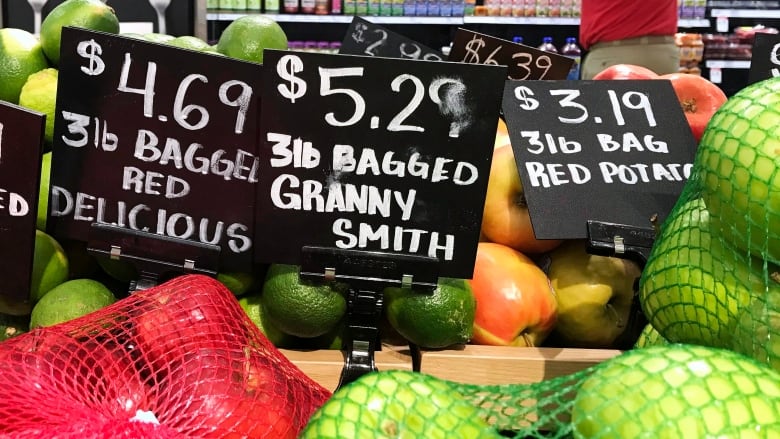 $4.69
3lb BAGGED
RED
DELICIOUS
$5.29
3lb BAGGED
GRANNY
SMITH
$3.19
3lb BAG
RED POTATO
$6.39
$2.99
ED